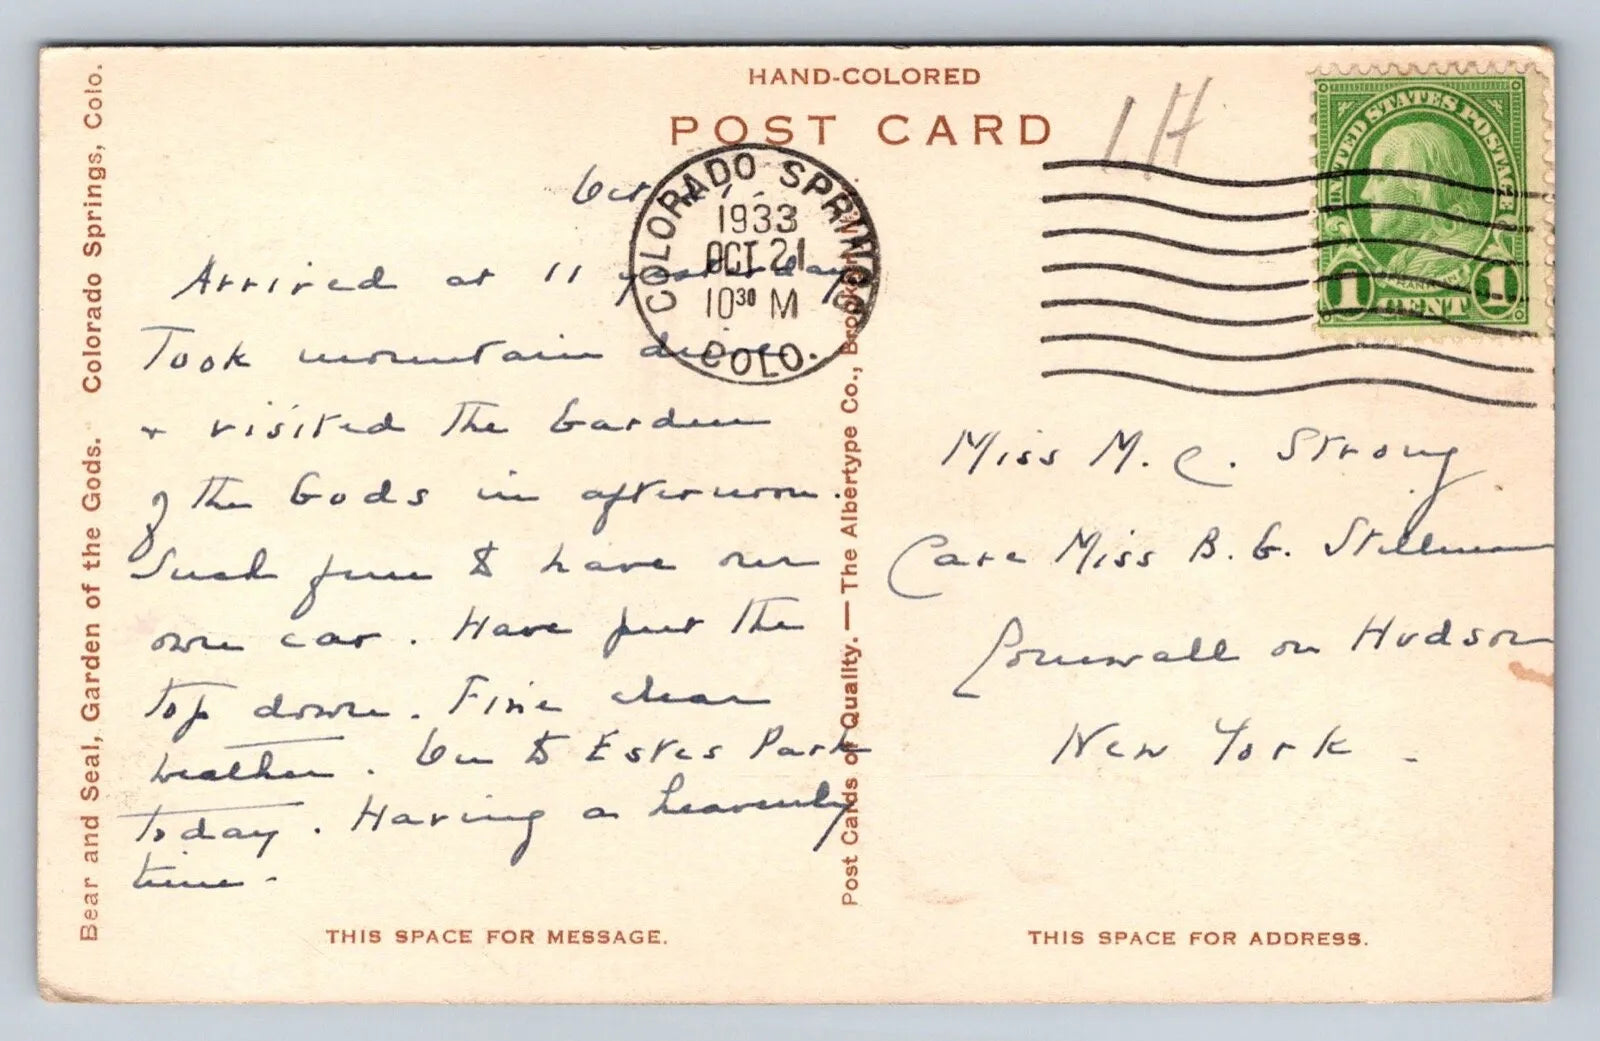 HAND-COLORED
POST CARD
1H
Oct
COLORADO SPRINGS
1933
OCT 21
10 30 M
COLO.
UNITED STATES POSTAGE
FRANKLIN
1 CENT 1
Arrived at 11 yesterday
Took mountain drive
+ visited the Garden
of the Gods in afternoon.
Such fun to have our
own car. Have put the
top down. Fine clear
weather. On to Estes Park
today. Having a heavenly
time.
Miss M. C. Strong
Care Miss B. G. Stillman
Cornwall on Hudson
New York.
Bear and Seal, Garden of the Gods. Colorado Springs, Colo.
Post Cards of Quality. — The Albertype Co., Brooklyn, N.Y.
THIS SPACE FOR MESSAGE.
THIS SPACE FOR ADDRESS.